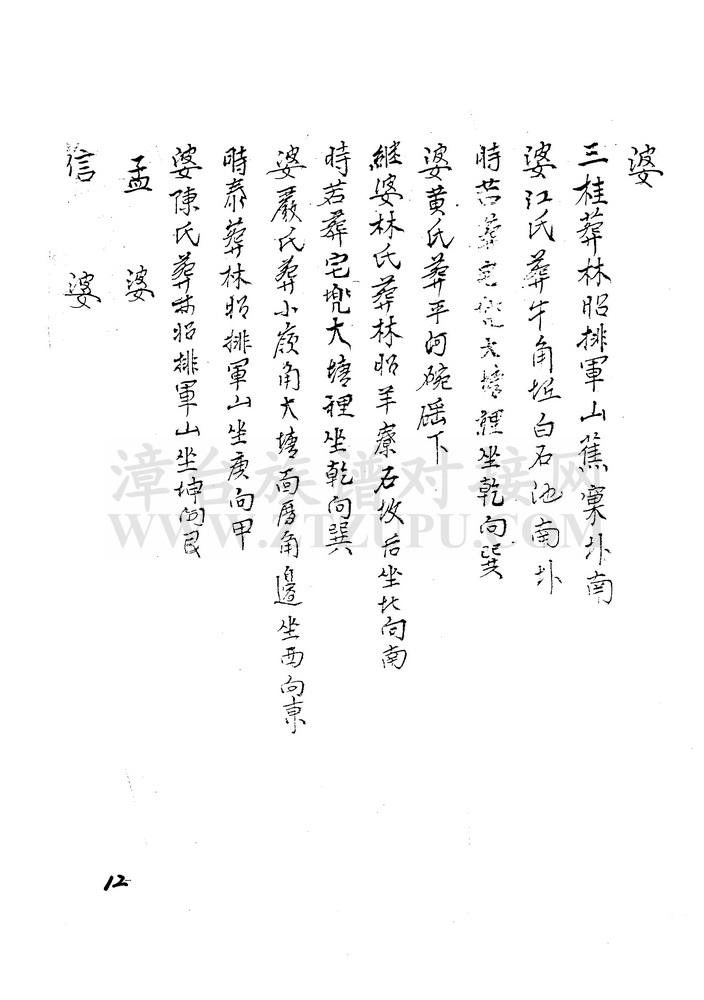 婆
三桂葬林昭排軍山蕉窠圤南
婆江氏葬牛角坵白石池南圤
時苦葬宅兜大塘裡坐乾向巽
婆黄氏葬平河碗磘下
継婆林氏葬林昭羊寮石坟后坐北向南
時若葬宅兜大塘裡坐乾向巽
婆嚴氏葬小嶺角大塘面厝角邊坐西向東
時泰葬林昭排軍山坐庚向甲
婆陳氏葬林昭排軍山坐坤向艮
孟 婆
信 婆
12
漳台族谱对接网
WWW.ZTZUPU.COM